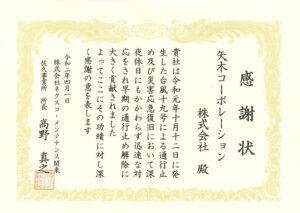 感謝状
矢木コーポレーション
株式会社 殿
貴社は令和元年十月十二に発
生した台風十九号による通行止
め及び災害応急復旧において深
夜休日にもかかわらず迅速な対
応をされ早期の通行止め解除に
大きく貢献されました
よってここにその功績に対し深
く感謝の意を表します
令和二年四月一日
株式会社ネクスコ・メンテナンス関東
佐久事業所 所長
高野 真之